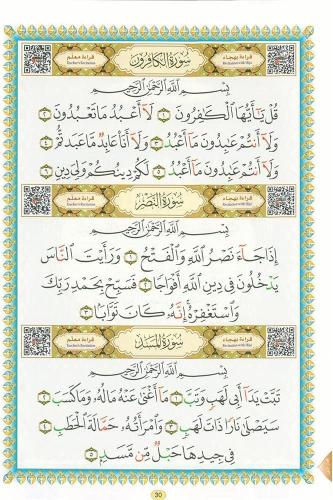 قراءة معلم سُورَةُ الكَافِرُونَ قراءة بهجاء
Teacher's Recitation Recitation with Hijaa
بِسْمِ اللَّهِ الرَّحْمَٰنِ الرَّحِيمِ
قُلْ يَا أَيُّهَا الْكَافِرُونَ ١ لَا أَعْبُدُ مَا تَعْبُدُونَ ٢
وَلَا أَنْتُمْ عَابِدُونَ مَا أَعْبُدُ ٣ وَلَا أَنَا عَابِدٌ مَّا عَبَدتُّمْ ٤
وَلَا أَنْتُمْ عَابِدُونَ مَا أَعْبُدُ ٥ لَكُمْ دِينُكُمْ وَلِيَ دِينِ ٦
قراءة معلم سُورَةُ النَّصْرِ قراءة بهجاء
Teacher's Recitation Recitation with Hijaa
بِسْمِ اللَّهِ الرَّحْمَٰنِ الرَّحِيمِ
إِذَا جَاءَ نَصْرُ اللَّهِ وَالْفَتْحُ ١ وَرَأَيْتَ النَّاسَ
يَدْخُلُونَ فِي دِينِ اللَّهِ أَفْوَاجًا ٢ فَسَبِّحْ بِحَمْدِ رَبِّكَ
وَاسْتَغْفِرْهُ إِنَّهُ كَانَ تَوَّابًا ٣
قراءة معلم سُورَةُ المَسَدِ قراءة بهجاء
Teacher's Recitation Recitation with Hijaa
بِسْمِ اللَّهِ الرَّحْمَٰنِ الرَّحِيمِ
تَبَّتْ يَدَا أَبِي لَهَبٍ وَتَبَّ ١ مَا أَغْنَىٰ عَنْهُ مَالُهُ وَمَا كَسَبَ ٢
سَيَصْلَىٰ نَارًا ذَاتَ لَهَبٍ ٣ وَامْرَأَتُهُ حَمَّالَةَ الْحَطَبِ ٤
فِي جِيدِهَا حَبْلٌ مِّن مَّسَدٍ ٥
30